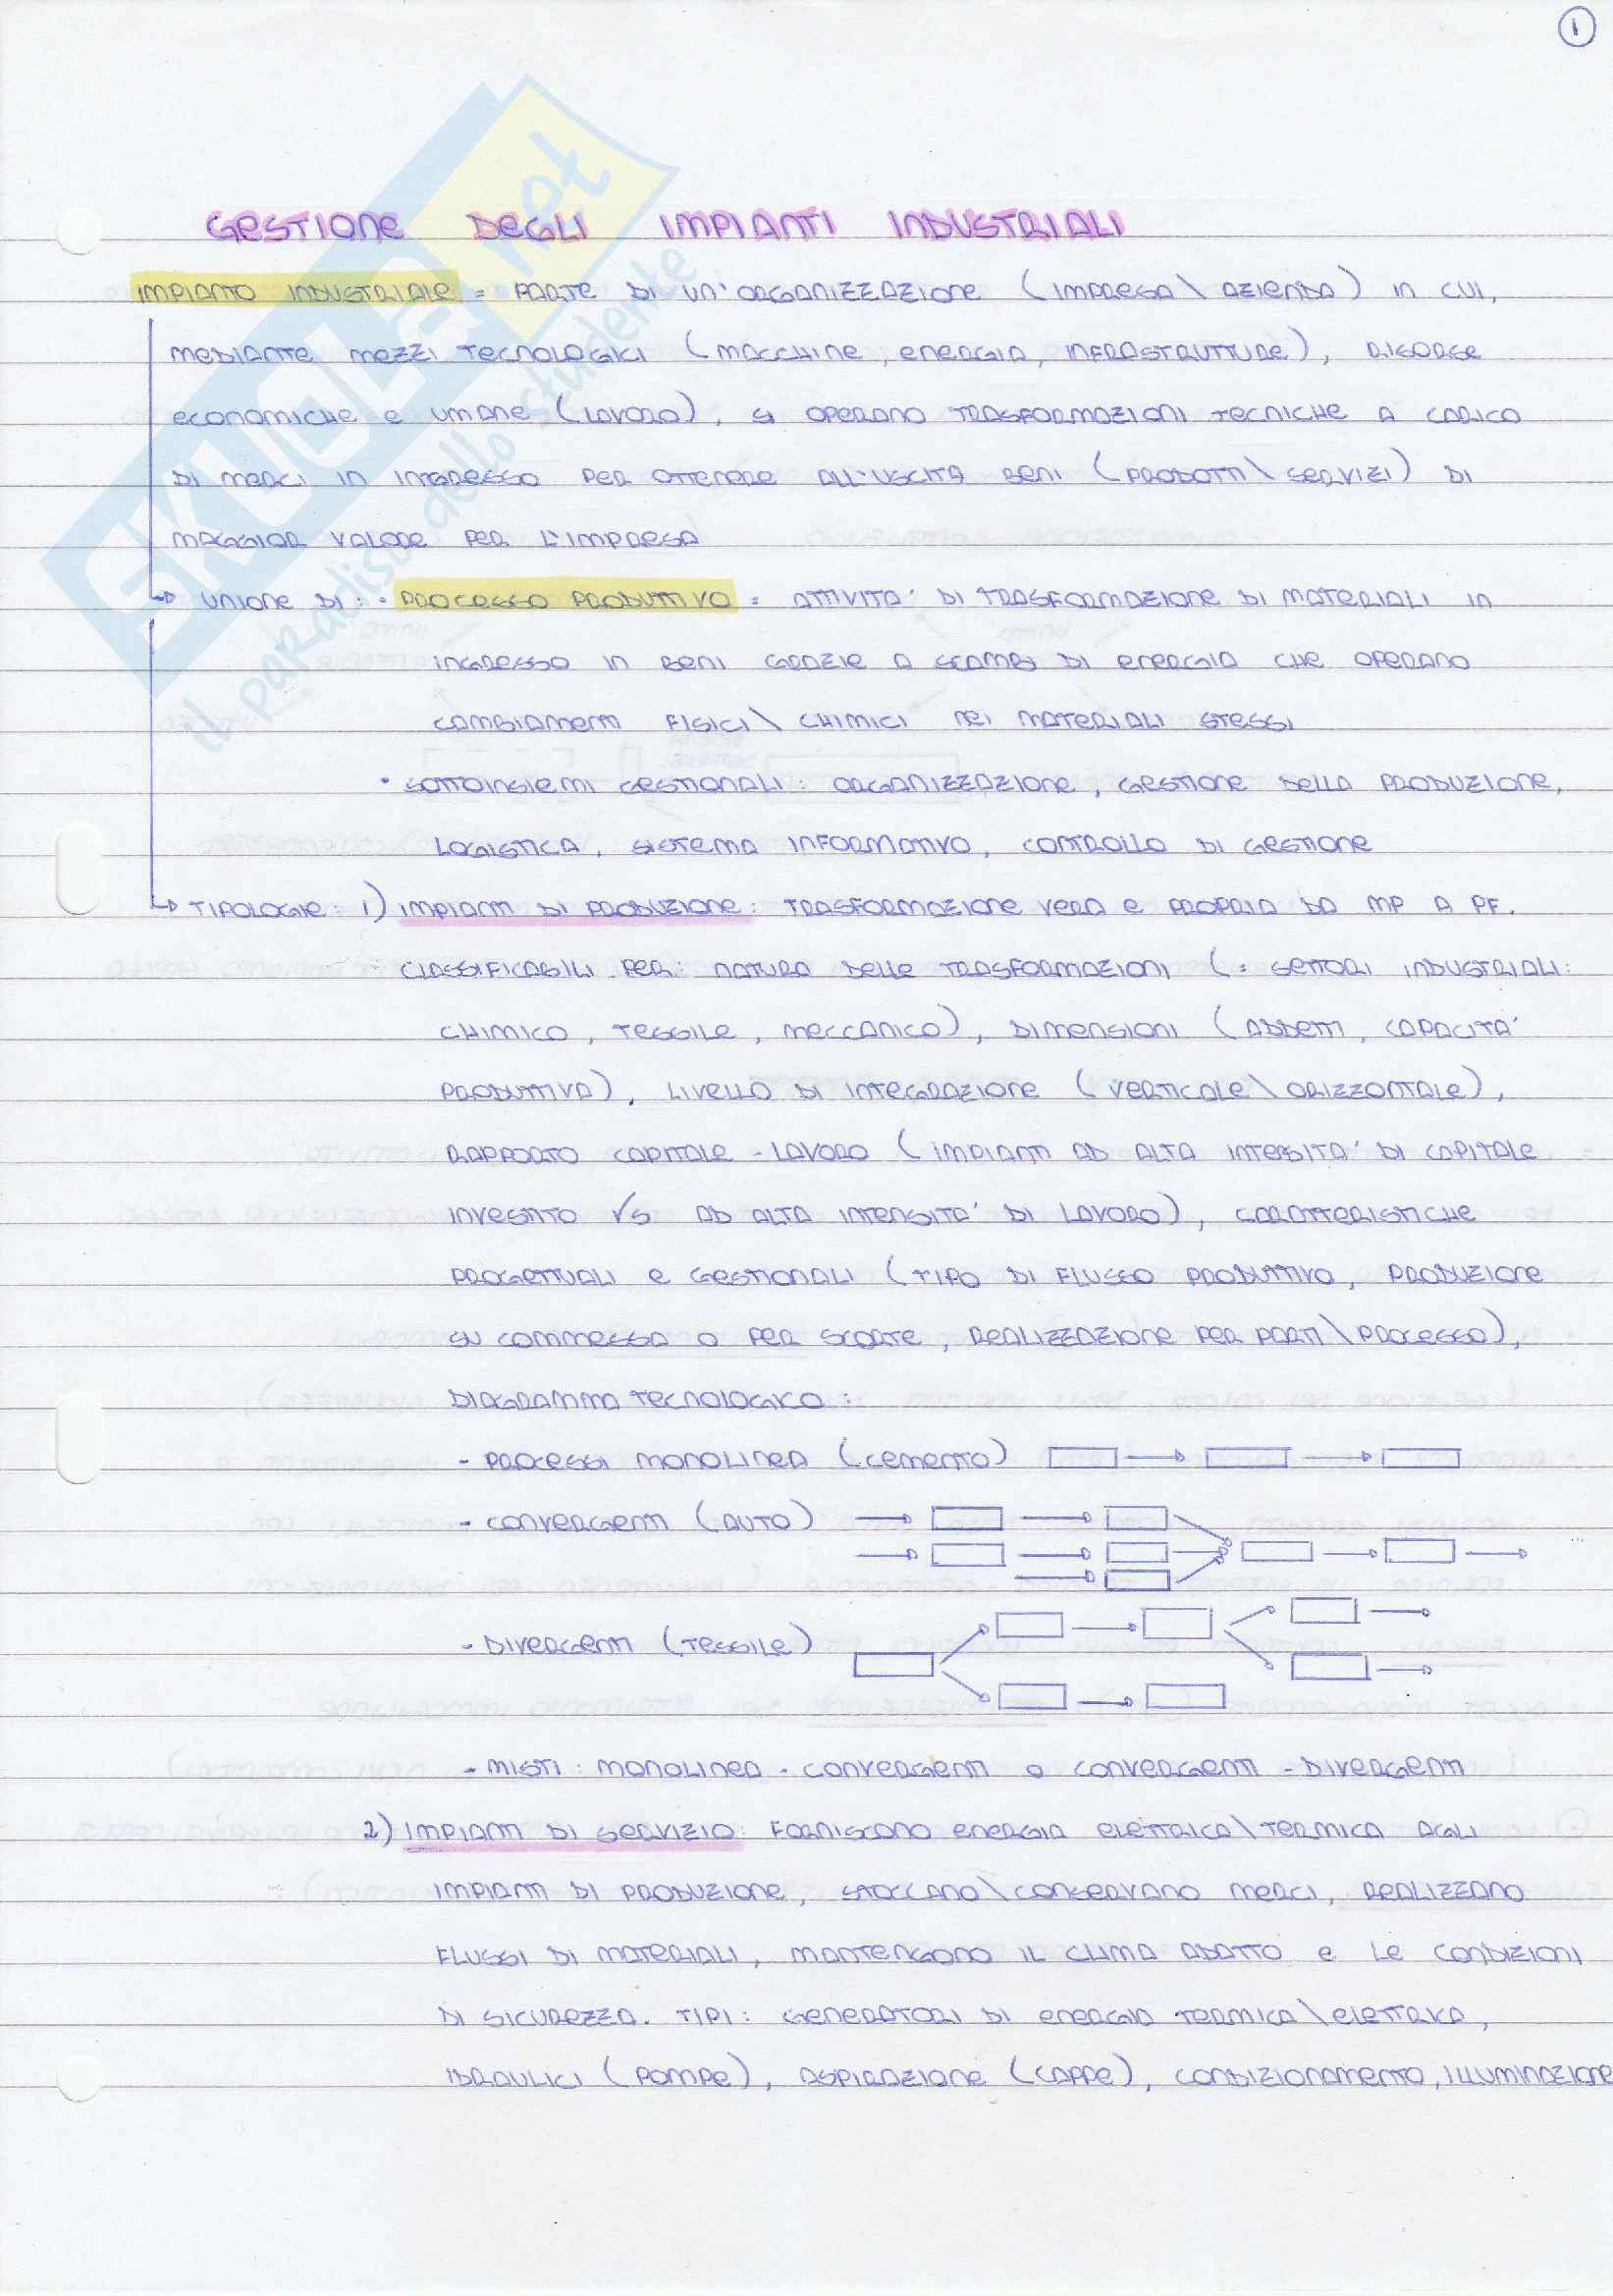 1
GESTIONE DEGLI IMPIANTI INDUSTRIALI
IMPIANTO INDUSTRIALE = PARTE DI UN'ORGANIZZAZIONE (IMPRESA\AZIENDA) IN CUI,
MEDIANTE MEZZI TECNOLOGICI (MACCHINE, ENERGIA, INFRASTRUTTURE), RISORSE
ECONOMICHE E UMANE (LAVORO), SI OPERANO TRASFORMAZIONI TECNICHE A CARICO
DI MERCI IN INGRESSO PER OTTENERE ALL'USCITA BENI (PRODOTTI\SERVIZI) DI
MAGGIOR VALORE PER L'IMPRESA
UNIONE DI: • PROCESSO PRODUTTIVO = ATTIVITA' DI TRASFORMAZIONE DI MATERIALI IN
INGRESSO IN BENI GRAZIE A SCAMBI DI ENERGIA CHE OPERANO
CAMBIAMENTI FISICI\CHIMICI NEI MATERIALI STESSI
• SOTTOINSIEMI GESTIONALI: ORGANIZZAZIONE, GESTIONE DELLA PRODUZIONE,
LOGISTICA, SISTEMA INFORMATIVO, CONTROLLO DI GESTIONE
TIPOLOGIE: 1) IMPIANTI DI PRODUZIONE: TRASFORMAZIONE VERA E PROPRIA DA MP A PF.
CLASSIFICABILI PER: NATURA DELLE TRASFORMAZIONI (= SETTORI INDUSTRIALI:
CHIMICO, TESSILE, MECCANICO), DIMENSIONI (ADDETTI, CAPACITA'
PRODUTTIVA), LIVELLO DI INTEGRAZIONE (VERTICALE\ORIZZONTALE),
RAPPORTO CAPITALE - LAVORO (IMPIANTI AD ALTA INTENSITA' DI CAPITALE
INVESTITO VS AD ALTA INTENSITA' DI LAVORO), CARATTERISTICHE
PROGETTUALI E GESTIONALI (TIPO DI FLUSSO PRODUTTIVO, PRODUZIONE
SU COMMESSA O PER SCORTE, REALIZZAZIONE PER PARTI\PROCESSO),
DIAGRAMMA TECNOLOGICO:
- PROCESSI MONOLINEA (CEMENTO)
- CONVERGENTI (AUTO)
- DIVERGENTI (TESSILE)
- MISTI: MONOLINEA - CONVERGENTI O CONVERGENTI - DIVERGENTI
2) IMPIANTI DI SERVIZIO: FORNISCONO ENERGIA ELETTRICA\TERMICA AGLI
IMPIANTI DI PRODUZIONE, STOCCANO\CONSERVANO MERCI, REALIZZANO
FLUSSI DI MATERIALI, MANTENGONO IL CLIMA ADATTO E LE CONDIZIONI
DI SICUREZZA. TIPI: GENERATORI DI ENERGIA TERMICA\ELETTRICA,
IDRAULICI (POMPE), ASPIRAZIONE (CAPPE), CONDIZIONAMENTO, ILLUMINAZIONE
SKUOLA.net
il paradiso dello studente